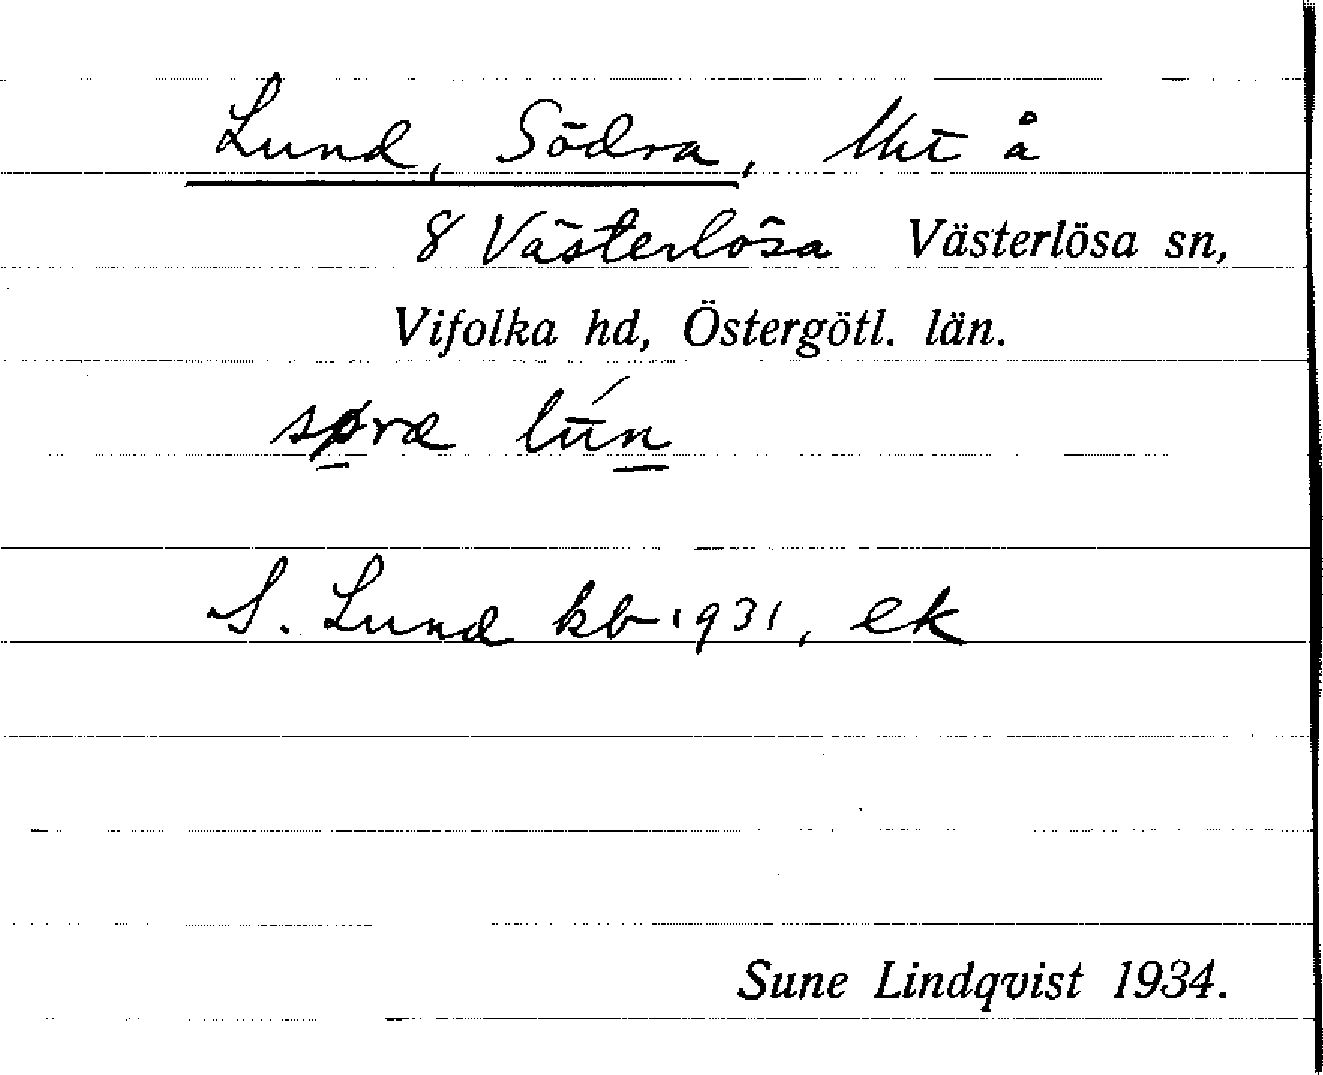 Lund, Södra, lht å
8 Västerlösa Västerlösa sn,
Vifolka hd, Östergötl. län.
sø̱ræ lū́ṉ
S. Lund kb 1931, ek
Sune Lindqvist 1934.